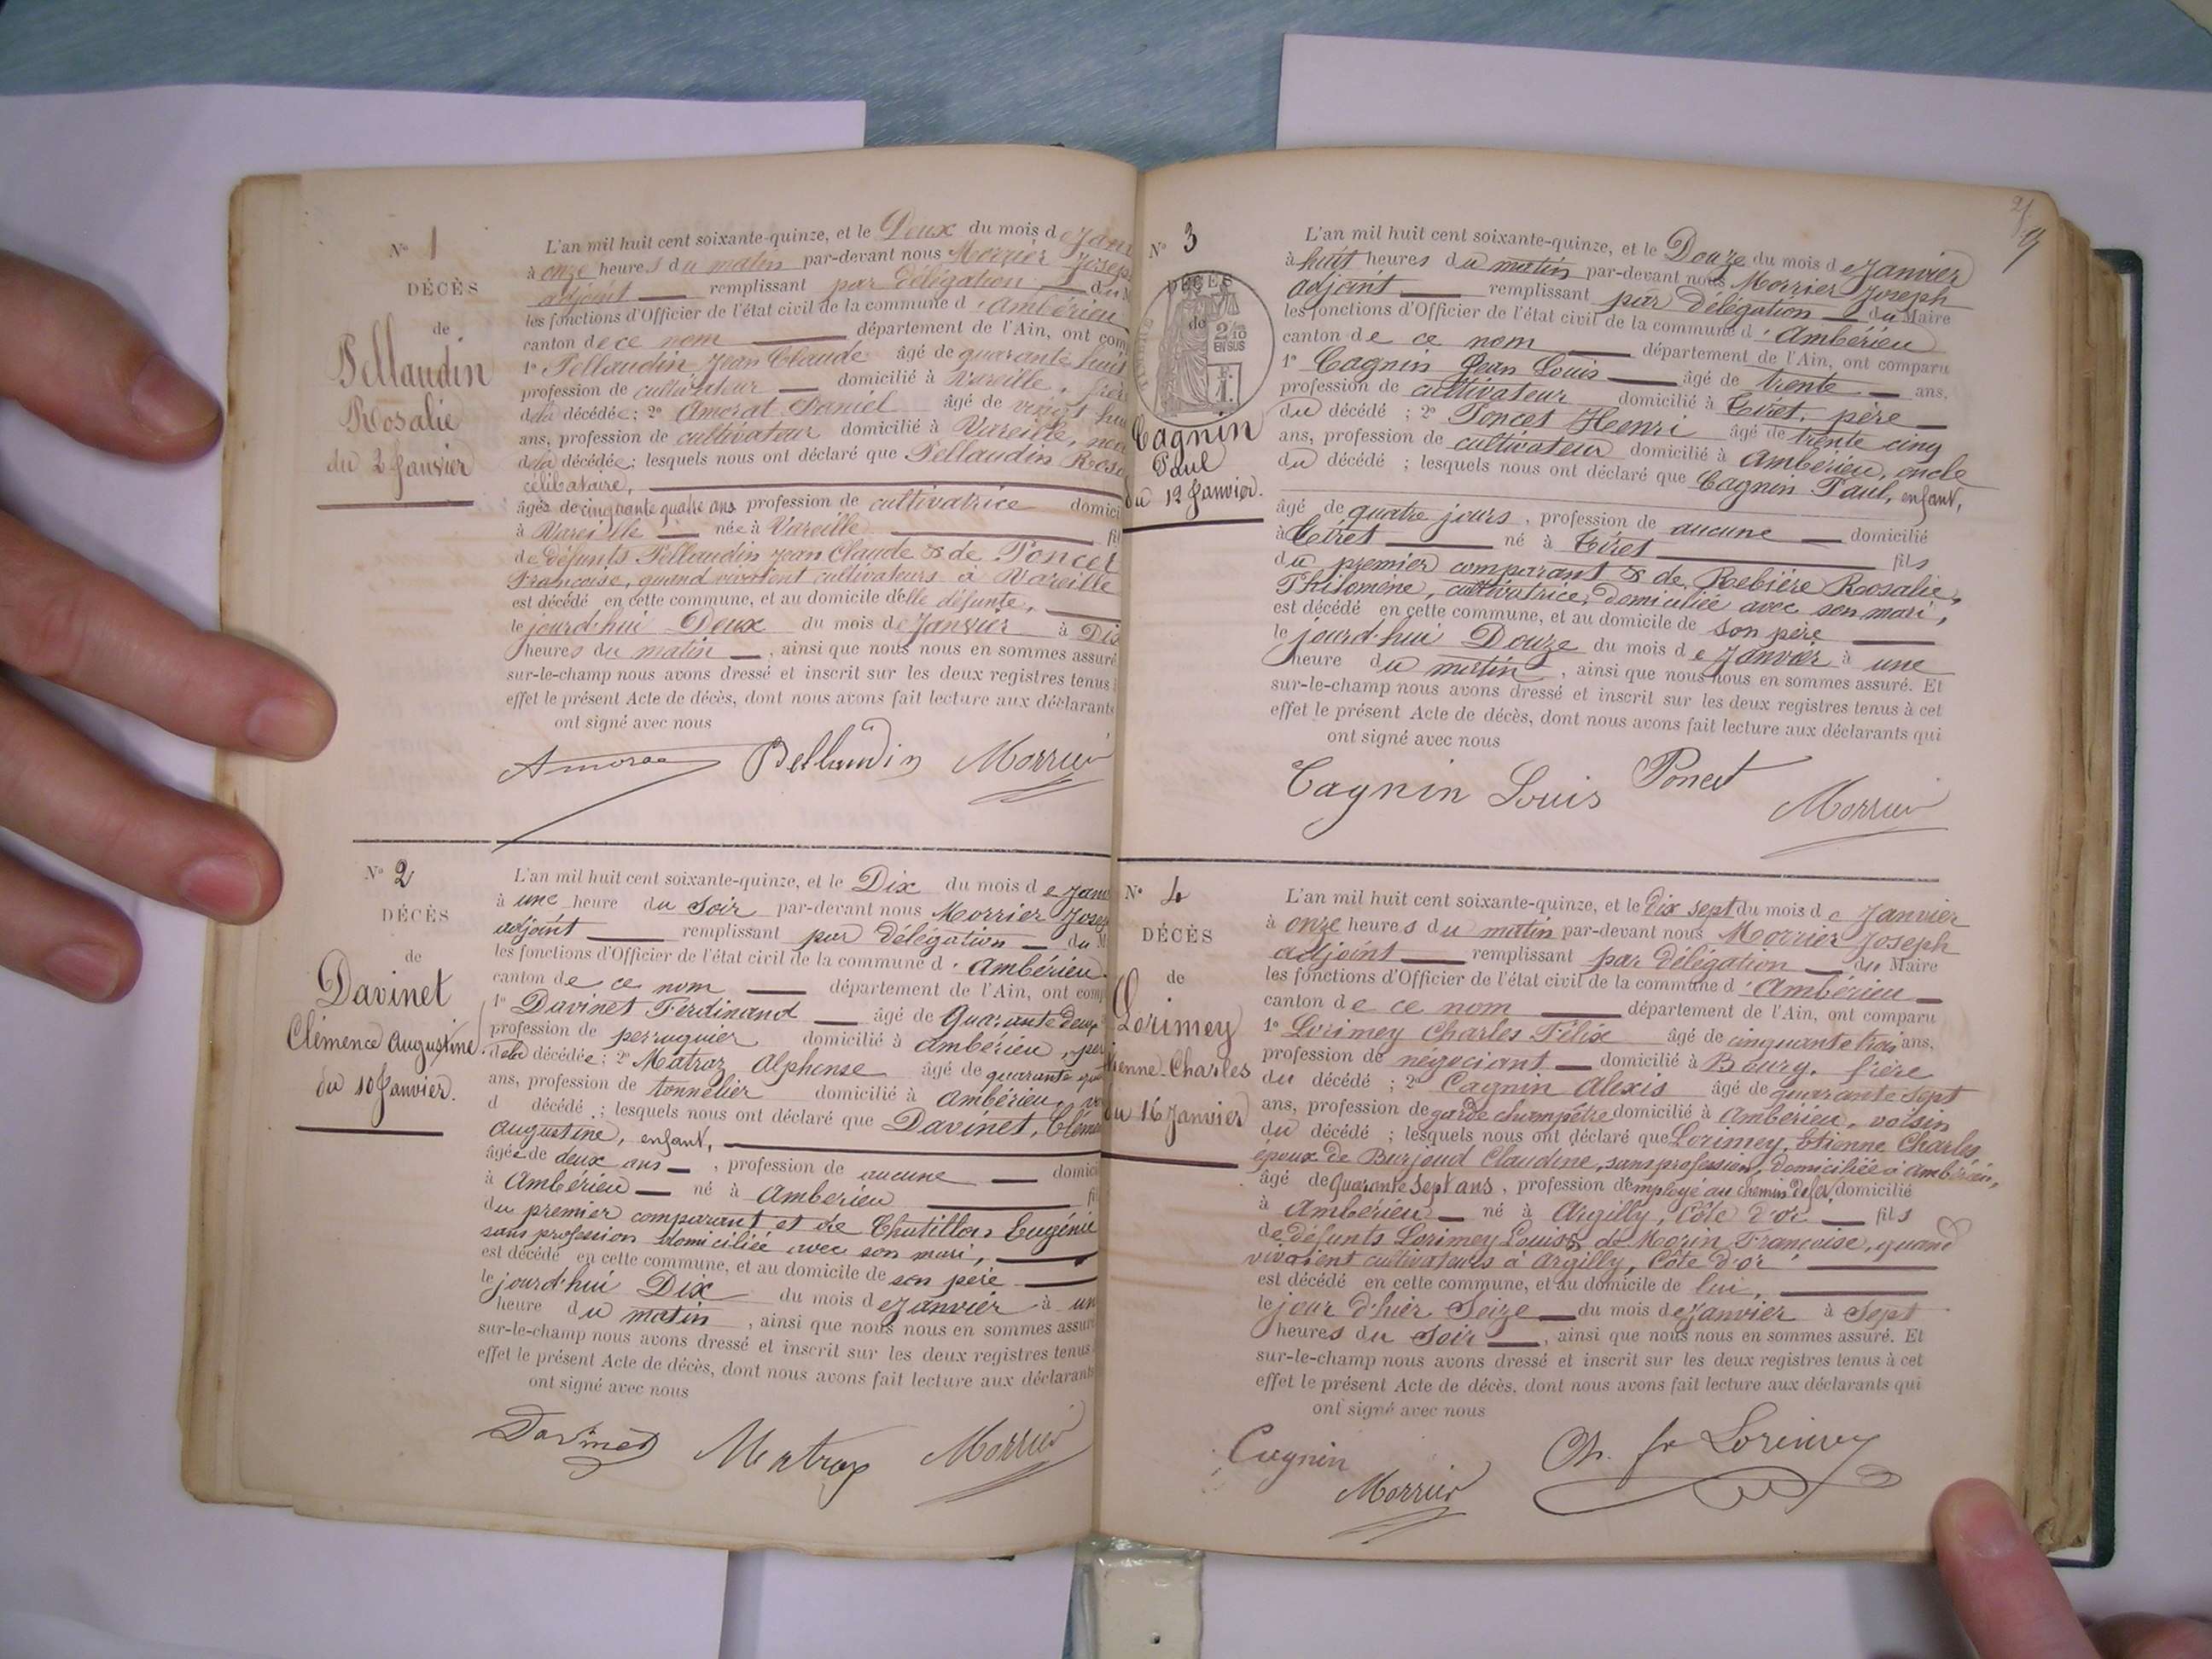 N° 1
DÉCÈS
de
Pellaudin
Rosalie
du 2 Janvier
L'an mil huit cent soixante-quinze, et le Deux du mois de Janv
à onze heures du matin par-devant nous Morrier Josep
adjoint remplissant par délégation du M
les fonctions d'Officier de l'état civil de la commune d'Ambérieu
canton de ce nom département de l'Ain, ont comp
1° Pellaudin Jean Claude âgé de quarante huit
profession de cultivateur domicilié à Vareille, frèr
dela décédée; 2° Amorat Daniel âgé de vingt hu
ans, profession de cultivateur domicilié à Vareille, nev
dela décédée; lesquels nous ont déclaré que Pellaudin Rosa
célibataire,
âgée de cinquante quatre ans profession de cultivatrice domici
à Vareille née à Vareille fil
de défunts Pellaudin Jean Claude & de Poncet
Françoise, quand vivaient cultivateurs à Vareille
est décédé en cette commune, et au domicile d'elle défunte,
le jourd'hui Deux du mois de Janvier à Dix
heures du matin, ainsi que nous nous en sommes assuré
sur-le-champ nous avons dressé et inscrit sur les deux registres tenus
effet le présent Acte de décès, dont nous avons fait lecture aux déclarants
ont signé avec nous
Pellaudin Morrier
N° 2
DÉCÈS
de
Davinet
Clémence Augustine
du 10 Janvier.
L'an mil huit cent soixante-quinze, et le Dix du mois de Janv
à une heure du Soir par-devant nous Morrier Josep
adjoint remplissant par délégation du M
les fonctions d'Officier de l'état civil de la commune d'Ambérieu
canton de ce nom département de l'Ain, ont comp
1° Davinet Ferdinand âgé de Quarante deux
profession de perruquier domicilié à Ambérieu, pèr
dela décédée; 2° Matraz Alphonse âgé de quarante qua
ans, profession de tonnelier domicilié à Ambérieu, vo
d décédé; lesquels nous ont déclaré que Davinet, Cléme
Augustine, enfant,
âgée de deux ans, profession de aucune domici
à Ambérieu né à Ambérieu fi
du premier comparant et de Chatillon Eugénie
sans profession domiciliée avec son mari,
est décédé en cette commune, et au domicile de son père
le jourd'hui Dix du mois de Janvier à un
heure du matin, ainsi que nous nous en sommes assuré
sur-le-champ nous avons dressé et inscrit sur les deux registres tenus
effet le présent Acte de décès, dont nous avons fait lecture aux déclarants
ont signé avec nous
Davinet Matraz Morrier
N° 3
DÉCÈS
de
2/10
EN SUS
Cagnin
Paul
du 12 Janvier.
L'an mil huit cent soixante-quinze, et le Douze du mois de Janvier
à huit heures du matin par-devant nous Morrier Joseph
adjoint remplissant par délégation du Maire
les fonctions d'Officier de l'état civil de la commune d'Ambérieu
canton de ce nom département de l'Ain, ont comparu
1° Cagnin Jean Louis âgé de trente ans,
profession de cultivateur domicilié à Tiret, père
du décédé; 2° Poncet Henri âgé de trente cinq
ans, profession de cultivateur domicilié à Ambérieu, oncle
du décédé; lesquels nous ont déclaré que Cagnin Paul, enfant,
âgé de quatre jours, profession de aucune domicilié
à Tiret né à Tiret fils
du premier comparant & de Rebière Rosalie,
Philomène, cultivatrice, domiciliée avec son mari,
est décédé en cette commune, et au domicile de son père
le jourd'hui Douze du mois de Janvier à une
heure du matin, ainsi que nous nous en sommes assuré. Et
sur-le-champ nous avons dressé et inscrit sur les deux registres tenus à cet
effet le présent Acte de décès, dont nous avons fait lecture aux déclarants qui
ont signé avec nous
Cagnin Louis Poncet Morrier
N° 4
DÉCÈS
de
Lorimey
tienne Charles
du 16 Janvier
L'an mil huit cent soixante-quinze, et le dix sept du mois de Janvier
à onze heures du matin par-devant nous Morrier Joseph
adjoint remplissant par délégation du Maire
les fonctions d'Officier de l'état civil de la commune d'Ambérieu
canton de ce nom département de l'Ain, ont comparu
1° Lorimey Charles Félix âgé de cinquante trois ans,
profession de négociant domicilié à Bourg, frère
du décédé; 2° Cagnin Alexis âgé de quarante sept
ans, profession de garde champêtre domicilié à Ambérieu, voisin
du décédé; lesquels nous ont déclaré que Lorimey, Etienne Charles
époux de Burjoud Claudine, sans profession, domiciliée à Ambérieu,
âgé de Quarante Sept ans, profession d'employé au chemin de fer, domicilié
à Ambérieu né à Argilly, Côte d'or fils
de défunts Lorimey Louis & de Morin Françoise, quand
vivaient cultivateurs à Argilly, Côte d'or
est décédé en cette commune, et au domicile de lui,
le jour d'hier Seize du mois de Janvier à Sept
heures du Soir, ainsi que nous nous en sommes assuré. Et
sur-le-champ nous avons dressé et inscrit sur les deux registres tenus à cet
effet le présent Acte de décès, dont nous avons fait lecture aux déclarants qui
ont signé avec nous
Cagnin Morrier Ch. fx Lorimey